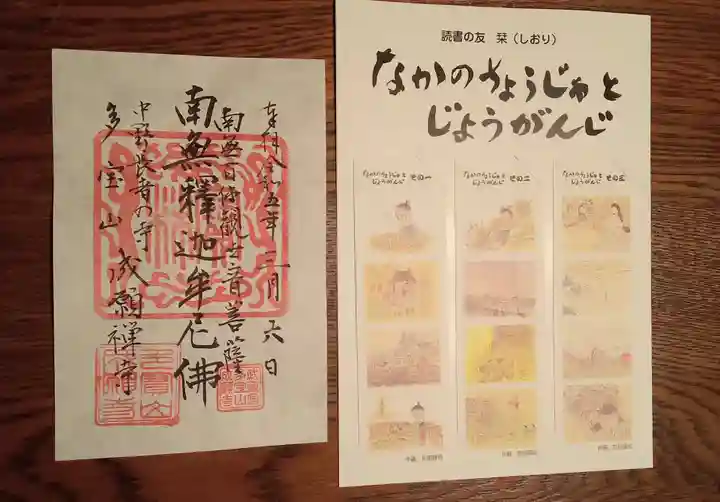 奉拝 令和五年三月六日
南無百体観世音菩薩
南無釋迦牟尼佛
中野長者の寺
多宝山 成願禅寺
読書の友 栞(しおり)
なかのちょうじゃと
じょうがんじ
なかのちょうじゃと
じょうがんじ その一
なかのちょうじゃと
じょうがんじ その二
なかのちょうじゃと
じょうがんじ その三